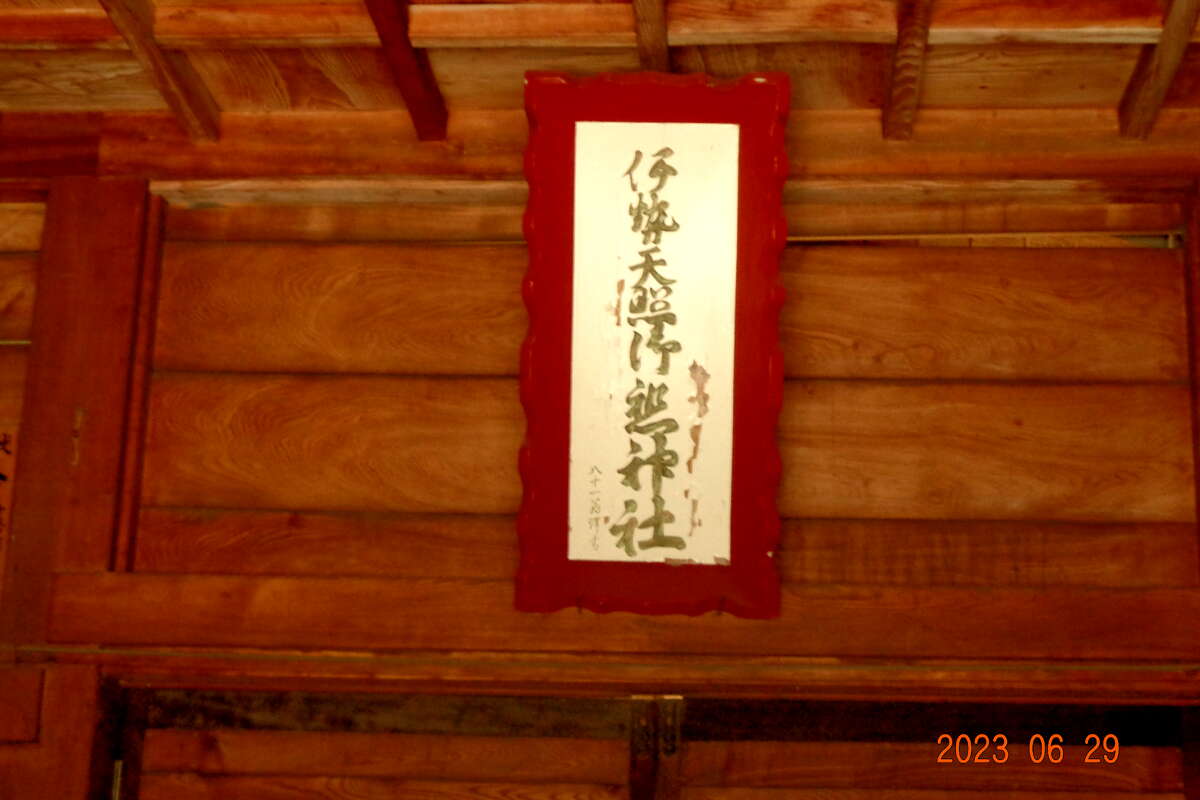 伊勢天照御祖神社
八十一翁
2023 06 29